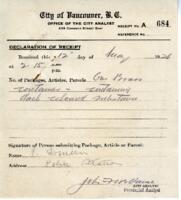 City of Vancouver, B.C.
OFFICE OF THE CITY ANALYST
RECEIPT No. A 684
REFERENCE No.
DECLARATION OF RECEIPT
Received this 12 day of May 1926
at 2.15
No. of Packages, Articles, Parcels. One Brass
container containing
dark coloured substance
Signature of Person submitting Package, Article or Parcel:
Address Police Station
CITY ANALYST
Provincial Analyst